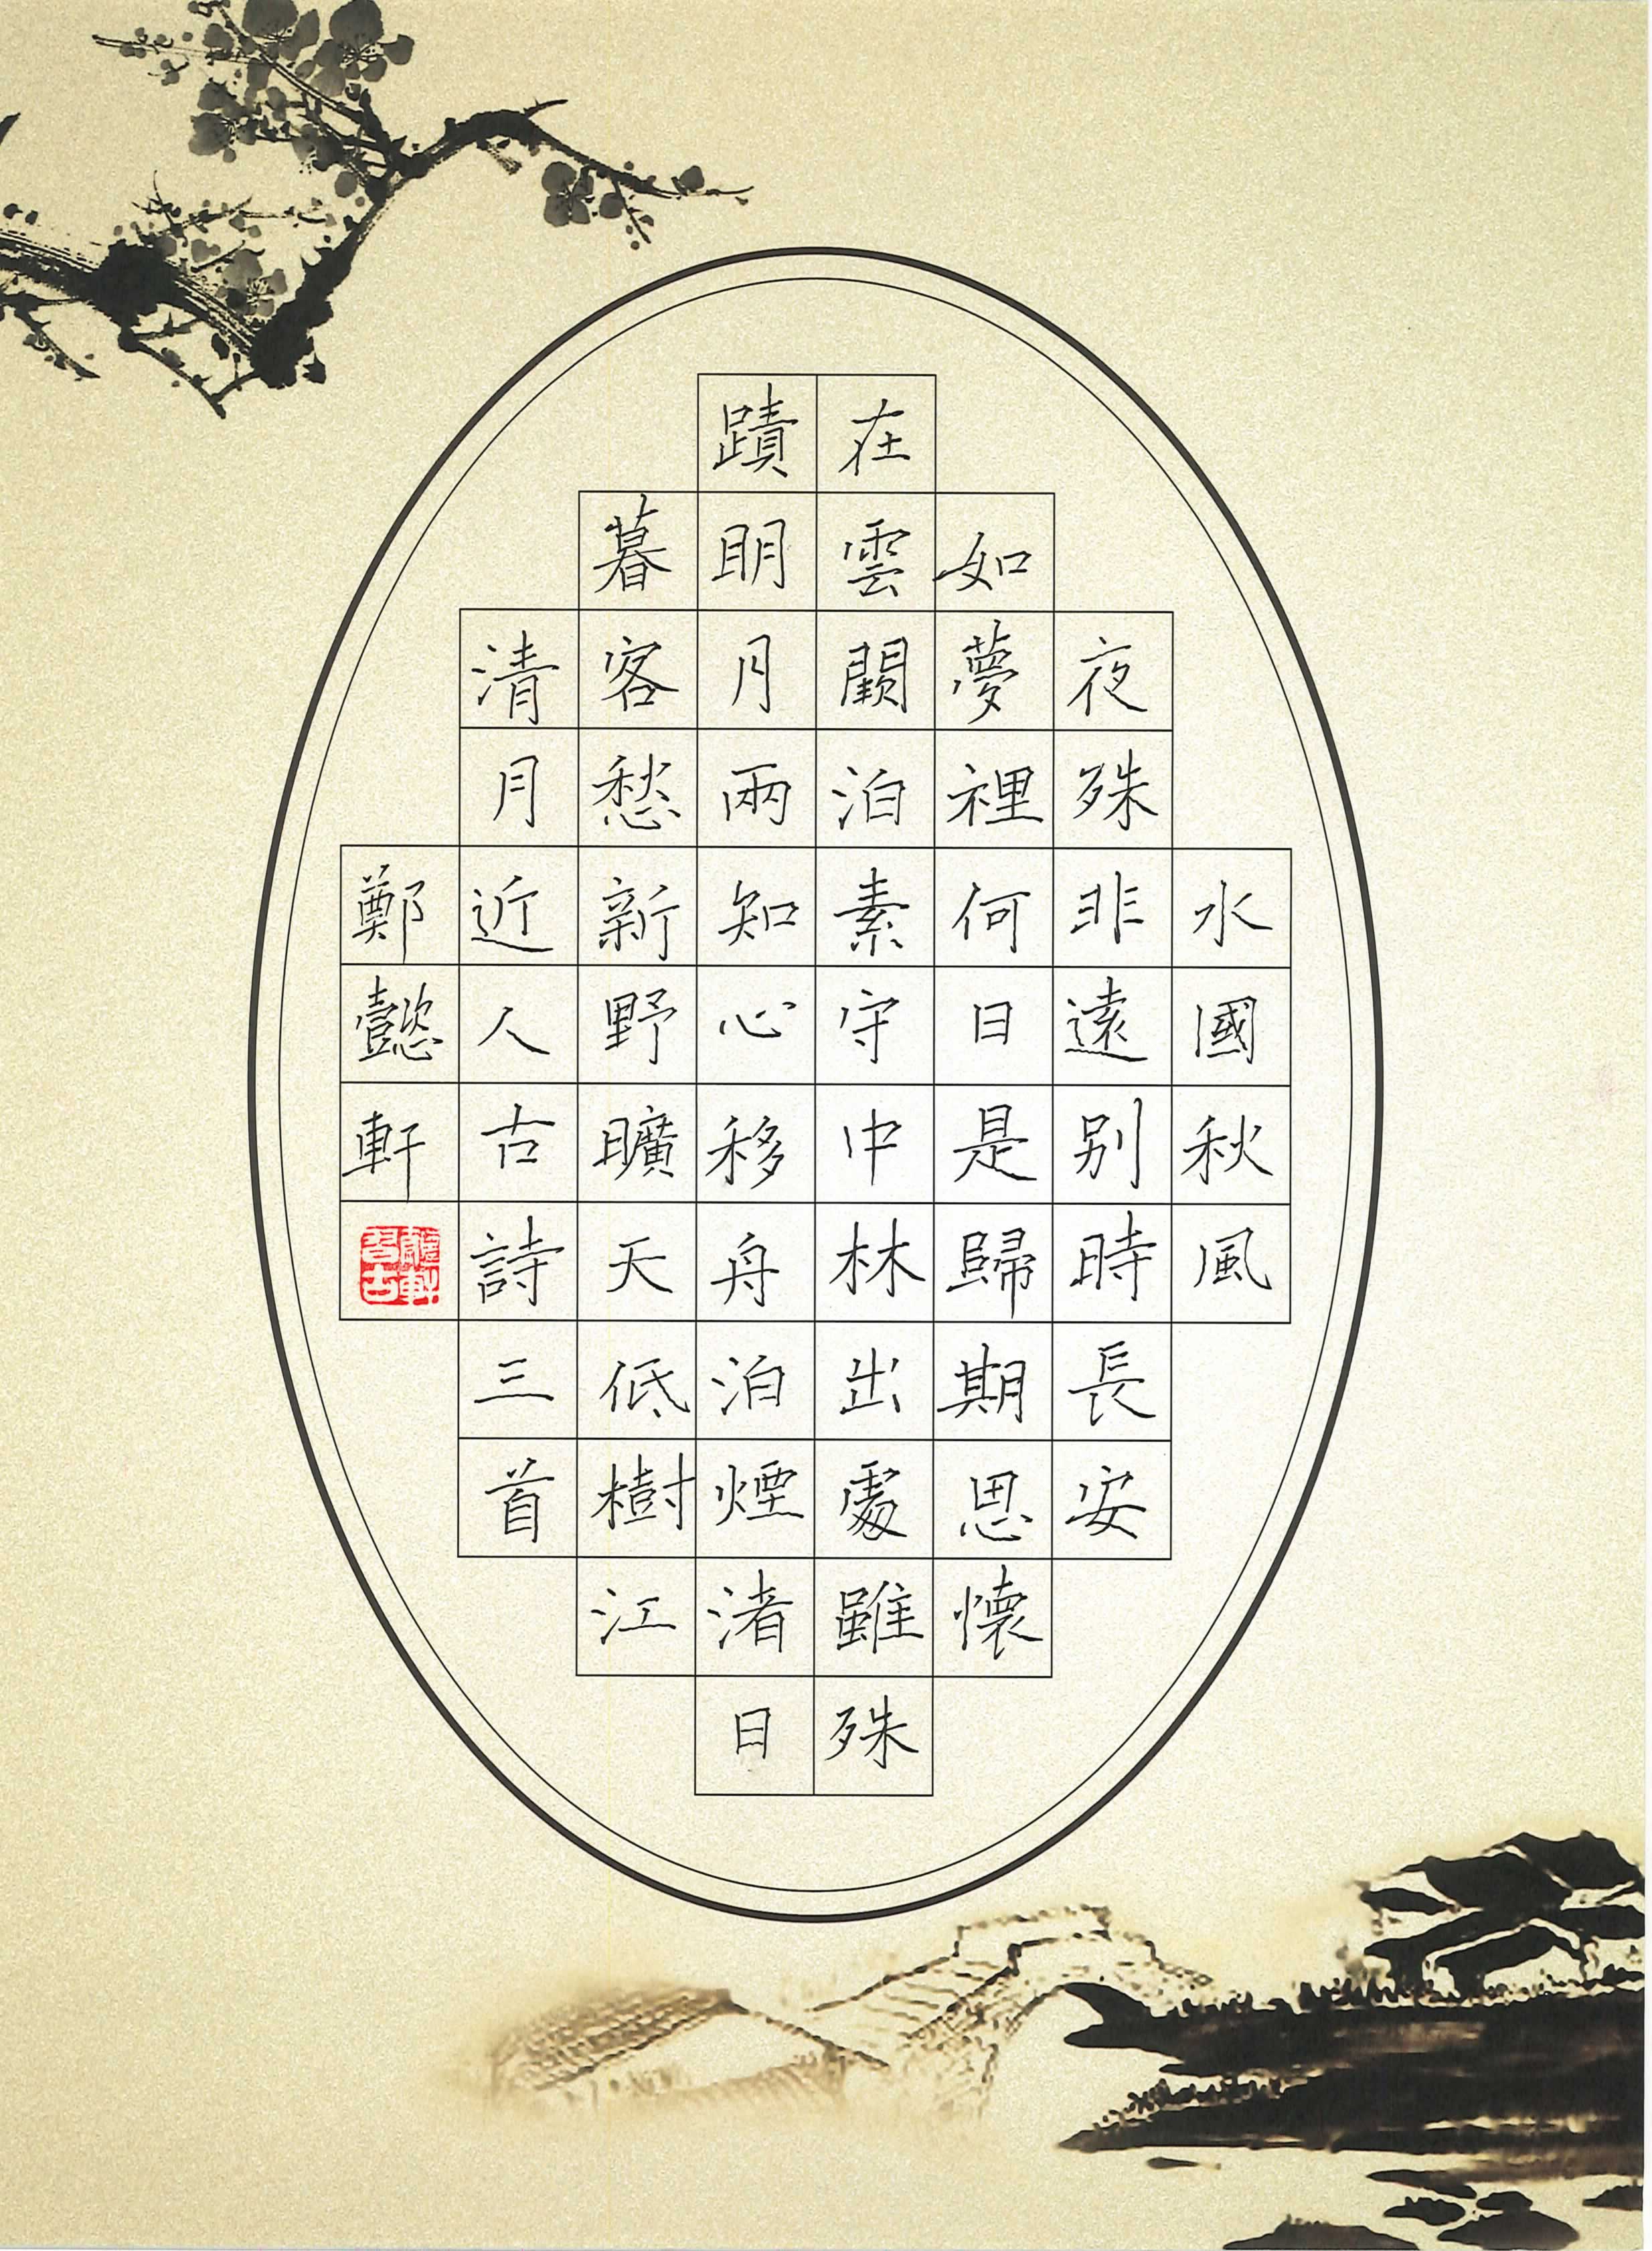 水國秋風
夜殊非遠別時長安
如夢裡何日是歸期思懷
在雲闕泊素守中林出處雖殊
蹟明月兩知心移舟泊煙渚日
暮客愁新野曠天低樹江
清月近人古詩三首
鄭懿軒
懿軒習古